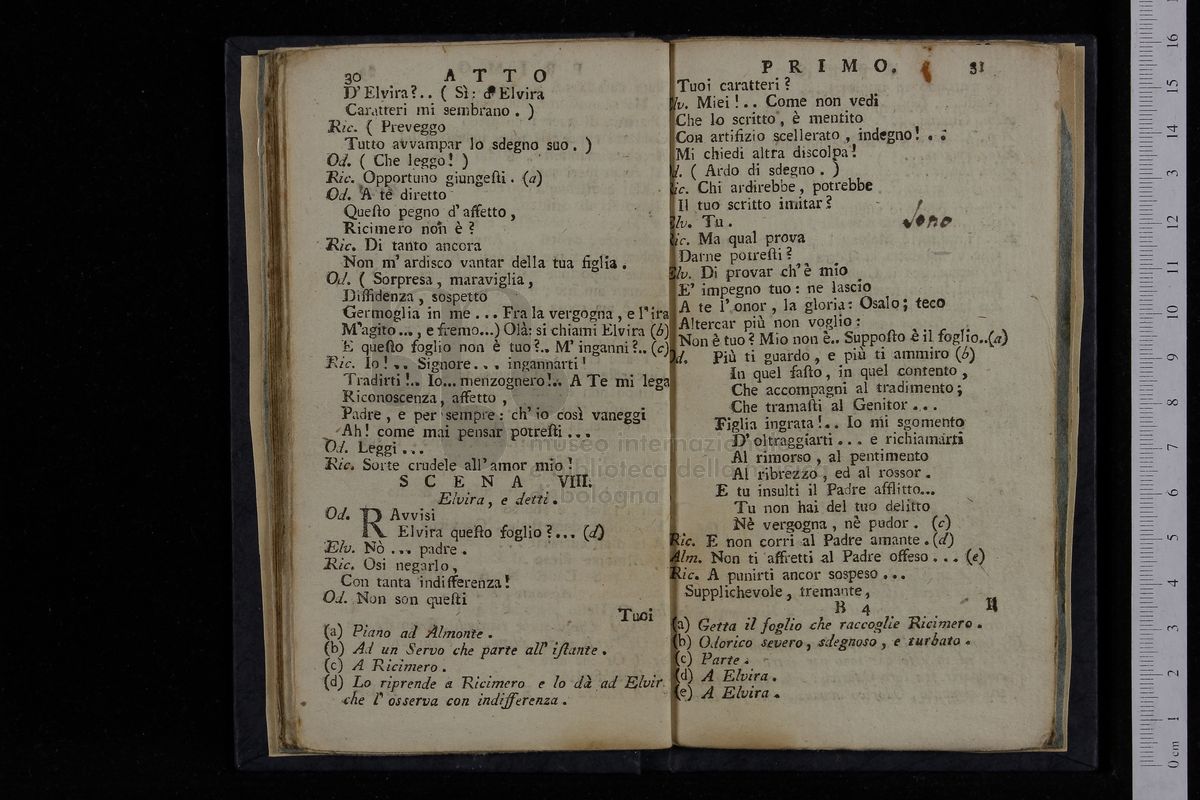 30 ATTO
D'Elvira?.. ( Sì: d'Elvira
Caratteri mi sembrano. )
Ric. ( Preveggo
Tutto avvampar lo sdegno suo. )
Od. ( Che leggo! )
Ric. Opportuno giungeſti. (a)
Od. A te diretto
Queſto pegno d'affetto,
Ricimero non è?
Ric. Di tanto ancora
Non m'ardisco vantar della tua figlia.
Od. ( Sorpresa, maraviglia,
Diffidenza, sospetto
Germoglia in me... Fra la vergogna, e l'ira
M'agito..., e fremo...) Olà: si chiami Elvira (b)
E queſto foglio non è tuo?.. M'inganni?.. (c)
Ric. Io!.. Signore... ingannarti!
Tradirti!.. Io... menzognero!.. A Te mi lega
Riconoscenza, affetto,
Padre, e per sempre: ch'io così vaneggi
Ah! come mai pensar potreſti...
Od. Leggi...
Ric. Sorte crudele all'amor mio!
SCENA VIII.
Elvira, e detti.
Od. RAvvisi
Elvira queſto foglio?... (d)
Elv. Nò... padre.
Ric. Osi negarlo,
Con tanta indifferenza!
Od. Non son queſti
Tuoi
(a) Piano ad Almonte.
(b) Ad un Servo che parte all'iſtante.
(c) A Ricimero.
(d) Lo riprende a Ricimero e lo dà ad Elvir
che l'osserva con indifferenza.
PRIMO. 31
Tuoi caratteri?
lv. Miei!.. Come non vedi
Che lo scritto, è mentito
Con artifizio scellerato, indegno!..
Mi chiedi altra discolpa!
d. ( Ardo di sdegno. )
ic. Chi ardirebbe, potrebbe
Il tuo scritto imitar?
Elv. Tu.
Sono
Ric. Ma qual prova
Darne potreſti?
Elv. Di provar ch'è mio
E' impegno tuo: ne lascio
A te l'onor, la gloria: Osalo; teco
Altercar più non voglio:
Non è tuo? Mio non è.. Suppoſto è il foglio..(a)
Od. Più ti guardo, e più ti ammiro (b)
In quel faſto, in quel contento,
Che accompagni al tradimento;
Che tramaſti al Genitor...
Figlia ingrata!.. Io mi sgomento
D'oltraggiarti... e richiamarti
Al rimorso, al pentimento
Al ribrezzo, ed al rossor.
E tu insulti il Padre afflitto...
Tu non hai del tuo delitto
Nè vergogna, nè pudor. (c)
Ric. E non corri al Padre amante. (d)
Alm. Non ti affretti al Padre offeso... (e)
Ric. A punirti ancor sospeso...
Supplichevole, tremante,
B 4
(a) Getta il foglio che raccoglie Ricimero.
(b) Odorico severo, sdegnoso, e turbato.
(c) Parte.
(d) A Elvira.
(e) A Elvira.
museo internazio
biblioteca della musica
bologna
0 cm 1 2 3 4 5 6 7 8 9 10 11 12 13 14 15 16